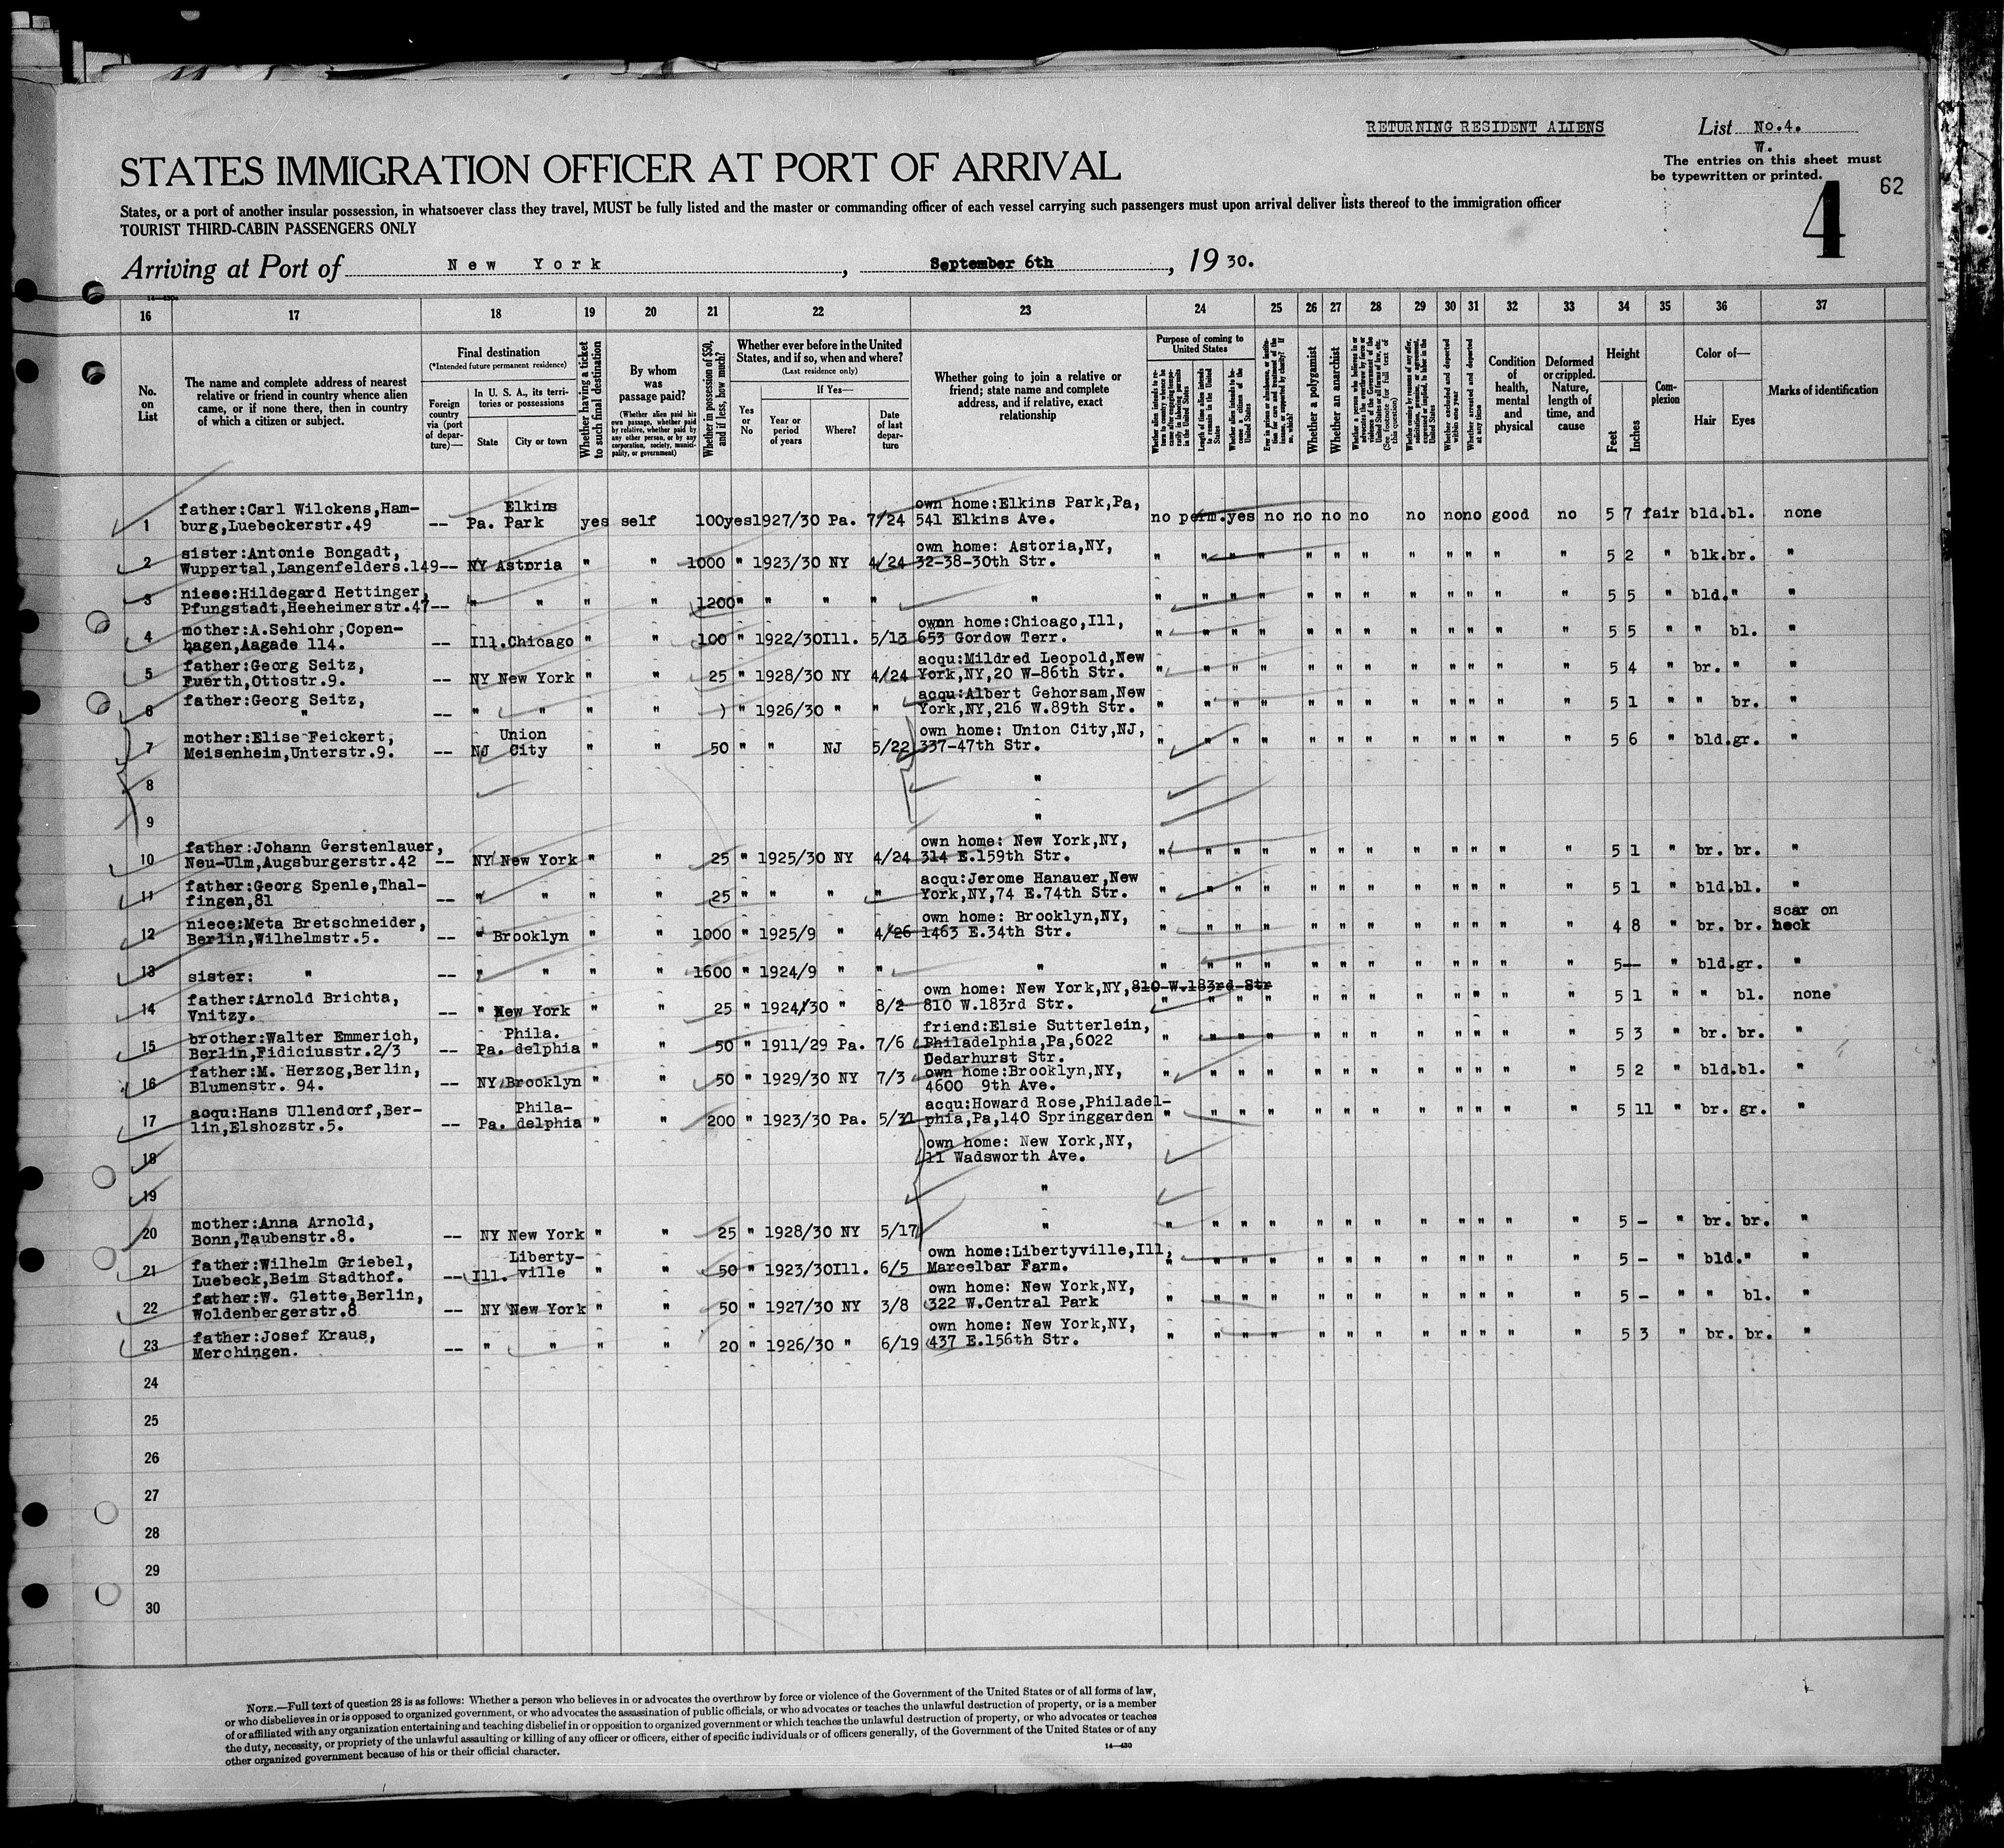 RETURNING RESIDENT ALIENS
List No.4.
W.
The entries on this sheet must
be typewritten or printed.
4
62
STATES IMMIGRATION OFFICER AT PORT OF ARRIVAL
States, or a port of another insular possession, in whatsoever class they travel, MUST be fully listed and the master or commanding officer of each vessel carrying such passengers must upon arrival deliver lists thereof to the immigration officer
TOURIST THIRD-CABIN PASSENGERS ONLY
Arriving at Port of New York, September 6th, 19 30.
16 17 18 19 20 21 22 23 24 25 26 27 28 29 30 31 32 33 34 35 36 37
No.
on
List
The name and complete address of nearest
relative or friend in country whence alien
came, or if none there, then in country
of which a citizen or subject.
Final destination
(*Intended future permanent residence)
Foreign
country
via (port
of depar-
ture)—
In U. S. A., its terri-
tories or possessions
State
City or town
Whether having a ticket
to such final destination
By whom
was
passage paid?
(Whether alien paid his
own passage, whether paid
by relative, whether paid by
any other person, or by any
corporation, society, munici-
pality, or government)
Whether in possession of $50,
and if less, how much?
Whether ever before in the United
States, and if so, when and where?
(Last residence only)
Yes
or
No
If Yes—
Year or
period
of years
Where?
Date
of last
depar-
ture
Whether going to join a relative or
friend; state name and complete
address, and if relative, exact
relationship
Purpose of coming to
United States
Length of time alien intends
to remain in the United
States
Whether alien intends to be-
come a citizen of the
United States
Whether a polygamist
Whether an anarchist
Whether excluded and deported
within one year
Whether arrested and deported
at any time
Condition
of
health,
mental
and
physical
Deformed
or crippled.
Nature,
length of
time, and
cause
Height
Feet
Inches
Com-
plexion
Color of—
Hair
Eyes
Marks of identification
father:Carl Wilckens,Ham- Elkins own home:Elkins Park,Pa,
1 burg,Luebeckerstr.49 -- Pa. Park yes self 100 yes 1927/30 Pa. 7/24 541 Elkins Ave. no perm. yes no no no no no no no good no 5 7 fair bld. bl. none
sister:Antonie Bongadt, own home: Astoria,NY,
2 Wuppertal,Langenfelders.149 -- NY Astoria " " 1000 " 1923/30 NY 4/24 32-38-30th Str. " " " " " " " " " " " " 5 2 " blk. br. "
niese:Hildegard Hettinger,
3 Pfungstadt,Heeheimerstr.47 -- " " " " 1200 " " " " " " " " " " " " " " " " " 5 5 " bld. " "
mother:A.Sehiohr,Copen- ownn home:Chicago,Ill,
4 hagen,Aagade 114. -- Ill. Chicago " " 100 " 1922/30 Ill. 5/13 653 Gordow Terr. " " " " " " " " " " " " 5 5 " " bl. "
father:Georg Seitz, acqu:Mildred Leopold,New
5 Fuerth,Ottostr.9. -- NY New York " " 25 " 1928/30 NY 4/24 York,NY,20 W-86th Str. " " " " " " " " " " " " 5 4 " br. " "
father:Georg Seitz, acqu:Albert Gehorsam,New
6 " -- " " " " ) " 1926/30 " " York,NY,216 W.89th Str. " " " " " " " " " " " " 5 1 " " br. "
mother:Elise Feickert, Union own home: Union City,NJ,
7 Meisenheim,Unterstr.9. -- NJ City " " 50 " " NJ 5/22 337-47th Str. " " " " " " " " " " " " 5 6 " bld. gr. "
8 "
9 "
father:Johann Gerstenlauer, own home: New York,NY,
10 Neu-Ulm,Augsburgerstr.42 -- NY New York " " 25 " 1925/30 NY 4/24 314 E.159th Str. " " " " " " " " " " " " 5 1 " br. br. "
father:Georg Spenle,Thal- acqu:Jerome Hanauer,New
11 fingen,81 -- " " " " 25 " " " " York,NY,74 E.74th Str. " " " " " " " " " " " " 5 1 " bld. bl. "
niece:Meta Bretschneider, own home: Brooklyn,NY, scar on
12 Berlin,Wilhelmstr.5. -- " Brooklyn " " 1000 " 1925/9 " 4/26 1463 E.34th Str. " " " " " " " " " " " " 4 8 " br. br. neck
13 sister: " -- " " " " 1600 " 1924/9 " " " " " " " " " " " " " " " 5 -- " bld. gr. "
father:Arnold Brichta, own home: New York,NY,810 W.183rd Str
14 Vnitzy. -- " New York " " 25 " 1924/30 " 8/2 810 W.183rd Str. " " " " " " " " " " " " 5 1 " " bl. none
brother:Walter Emmerich, Phila. friend:Elsie Sutterlein,
15 Berlin,Fidiciusstr.2/3 -- Pa. delphia " " 50 " 1911/29 Pa. 7/6 Philadelphia,Pa,6022 " " " " " " " " " " " " 5 3 " br. br. "
Cedarhurst Str.
father:M. Herzog,Berlin, own home:Brooklyn,NY,
16 Blumenstr. 94. -- NY Brooklyn " " 50 " 1929/30 NY 7/3 4600 9th Ave. " " " " " " " " " " " " 5 2 " bld. bl. "
acqu:Hans Ullendorf,Ber- Phila- acqu:Howard Rose,Philadel-
17 lin,Elshozstr.5. -- Pa. delphia " " 200 " 1923/30 Pa. 5/31 phia,Pa,140 Springgarden " " " " " " " " " " " " 5 11 " br. gr. "
own home: New York,NY,
18 11 Wadsworth Ave.
19 "
mother:Anna Arnold, "
20 Bonn,Taubenstr.8. -- NY New York " " 25 " 1928/30 NY 5/17 " " " " " " " " " " " " 5 - " br. br. "
father:Wilhelm Griebel, Liberty- own home:Libertyville,Ill,
21 Luebeck,Beim Stadthof. -- Ill. ville " " 50 " 1923/30 Ill. 6/5 Marcelbar Farm. " " " " " " " " " " " " 5 - " bld. " "
father:W. Glette,Berlin, own home: New York,NY,
22 Woldenbergerstr.8 -- NY New York " " 50 " 1927/30 NY 3/8 322 W.Central Park " " " " " " " " " " " " 5 - " " bl. "
father:Josef Kraus, own home: New York,NY,
23 Merchingen. -- " " " " 20 " 1926/30 " 6/19 437 E.156th Str. " " " " " " " " " " " " 5 3 " br. br. "
24
25
26
27
28
29
30
NOTE.—Full text of question 28 is as follows: Whether a person who believes in or advocates the overthrow by force or violence of the Government of the United States or of all forms of law,
or who disbelieves in or is opposed to organized government, or who advocates the assassination of public officials, or who advocates or teaches the unlawful destruction of property, or is a member
of or affiliated with any organization entertaining and teaching disbelief in or opposition to organized government or which teaches the unlawful destruction of property, or who advocates or teaches
the duty, necessity, or propriety of the unlawful assaulting or killing of any officer or officers, either of specific individuals or of officers generally, of the Government of the United States or of any
other organized government because of his or their official character.
14—430